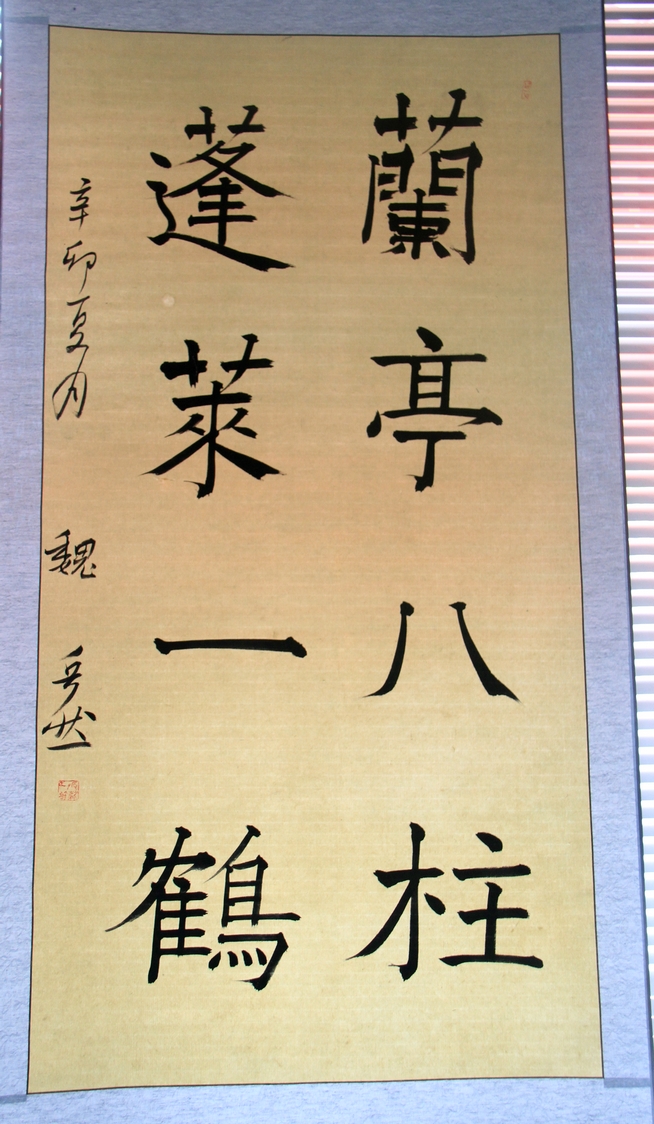 蘭亭八柱
蓬萊一鶴
辛卯夏月
魏